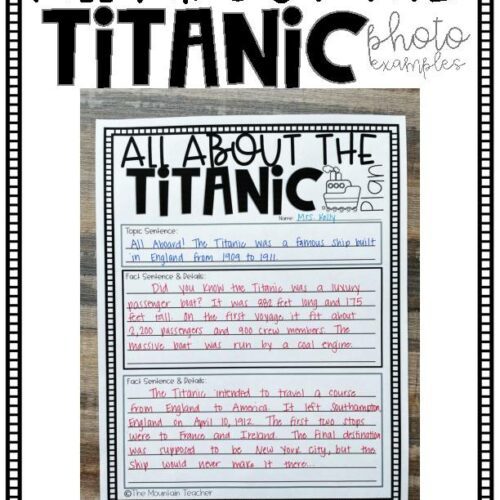 TITANIC
photo
examples
ALL ABOUT THE
TITANIC
Plan
Name: Mrs. Kelly
Topic Sentence:
All Aboard! The Titanic was a famous ship built
in England from 1909 to 1911.
Fact Sentence & Details:
Did you know the Titanic was a luxury
passenger boat? It was 882 feet long and 175
feet tall. On the first voyage, it fit about
2,200 passengers and 900 crew members. The
massive boat was run by a coal engine.
Fact Sentence & Details:
The Titanic intended to travel a course
from England to America. It left Southampton,
England on April 10, 1912. The first two stops
were to France and Ireland. The final destination
was supposed to be New York City, but the
ship would never make it there...
©The Mountain Teacher